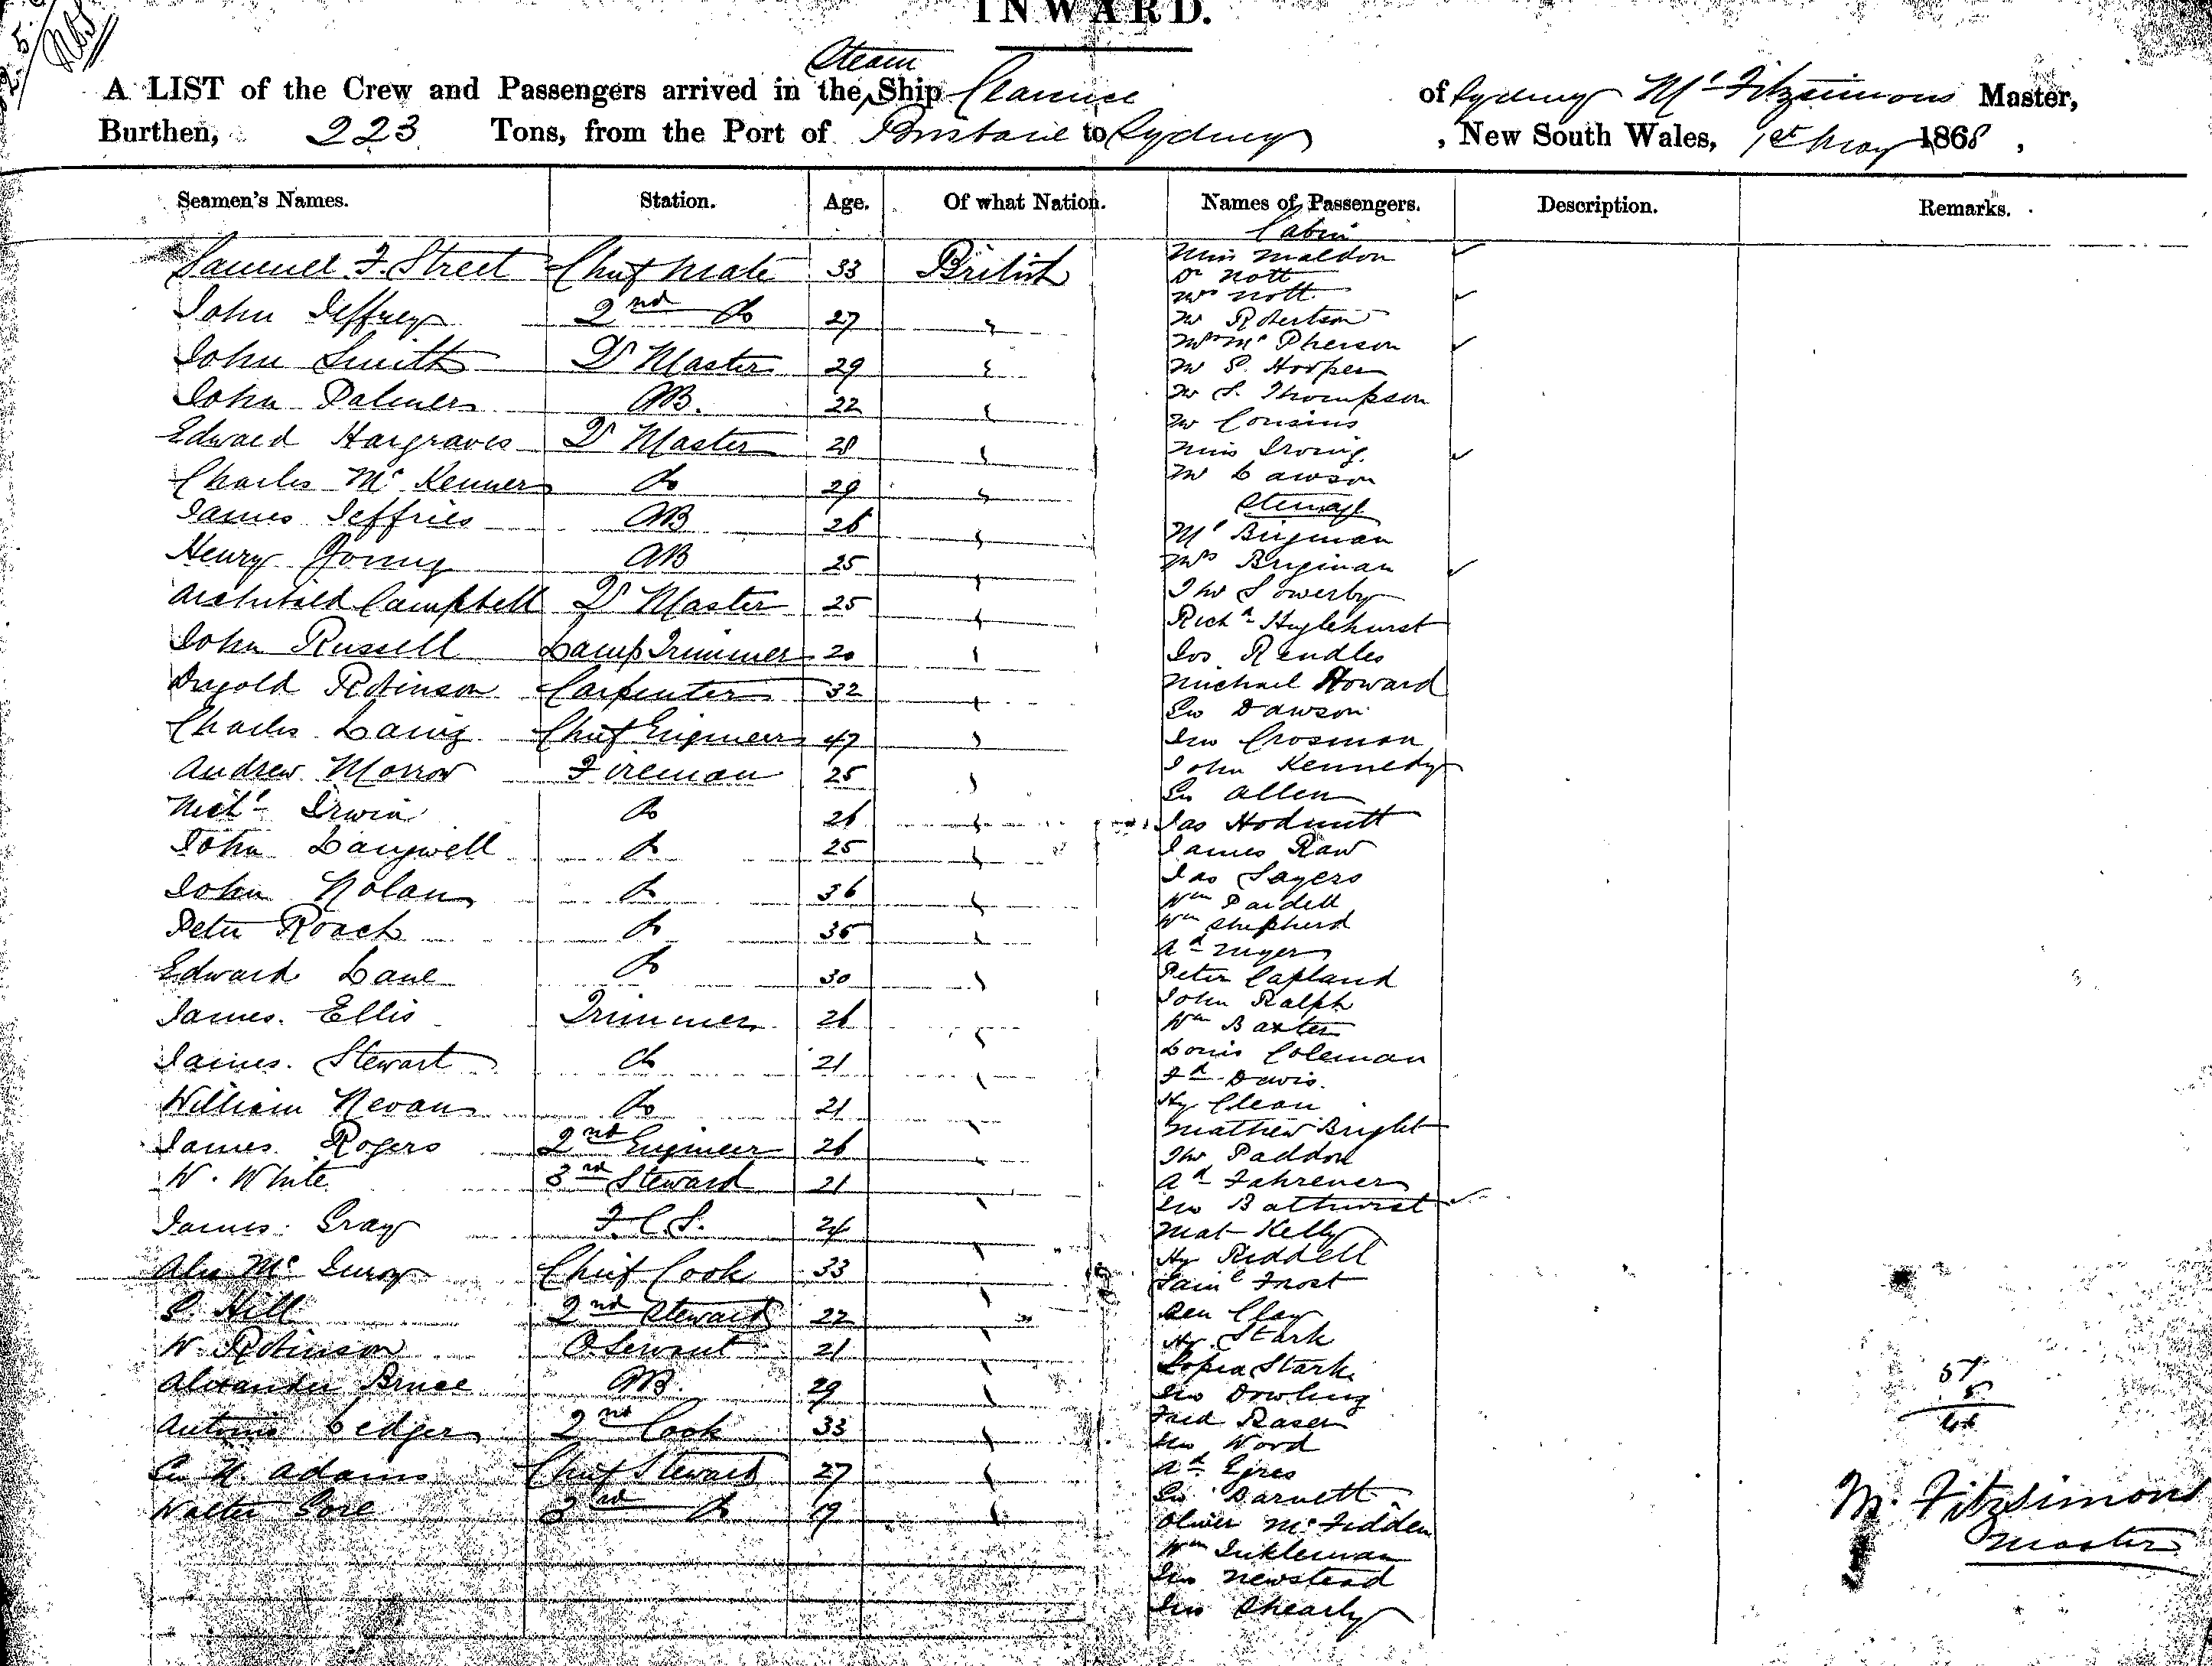 INWARD.
Steam
A LIST of the Crew and Passengers arrived in the Ship Clarence of Sydney Mr Fitzsimons Master,
Burthen, 223 Tons, from the Port of Brisbane to Sydney, New South Wales, 1st May 1868,
Seamen's Names. Station. Age. Of what Nation. Names of Passengers. Description. Remarks.
Samuel F. Street Chief Mate 33 British
John Jeffrey 2nd Do 27 "
John Smith Qr Master 29 "
John Palmer AB. 22 "
Edward Hargraves Qr Master 28 "
Charles Mc Kenner Do 29 "
James Jeffries AB 26 "
Henry Young AB 25 "
Archibald Campbell Qr Master 25 "
John Russell Lamp Trimmer 20 "
Robinson Carpenter 32 "
Charles Laing Chief Engineer 47 "
Andrew Morrow Fireman 25 "
Michl Irwin Do 26 "
John Langwell Do 25 "
John Nolan Do 36 "
Peter Roach Do 35 "
Edward Lane Do 30 "
James Ellis Trimmer 26 "
James Stewart do 21 "
William Nevan Do 21 "
James Rogers 2nd Engineer 26 "
W. White 3rd Steward 21 "
James Gray F.C.S. 24 "
Alex Mc Chief Cook 33 "
S. Hill 2nd Steward 22 "
W. Robinson O. Servant 21 "
Alexander Bruce AB. 29 "
Antonio Ledger 2nd Cook 33 "
Geo H. Adams Chief Steward 27 "
Walter Gore 3rd Do 19 "
Cabin
Miss Maldon
Dr Nott
Mrs Nott
Mr Robertson
Mrs Mc Pherson
Mr S. Hooper
Mr S. Thompson
Mr Cousins
Miss Irving
Mr Lawson
Steerage
Mr Birgman
Mrs Brigman
Tho Sowerby
Richd Haglehurst
Jos Rendles
Michael Howard
Geo Dawson
Jno Crosman
John Kennedy
Geo Allen
Jas Hodnutt
James Raw
Jas Sayers
Wm Pardell
Wm Shepherd
Ad Meyer
Peter Capland
John Ralph
Wm Baxter
Louis Coleman
Fd Davis
Hy Clean
Mathew Bright
Tho Paddon
Ad Fahrener
Geo Bathurst
Mat Kelly
Hy Riddell
Saml Frost
Ben Clay
Hy Stark
Sophia Stark
Jno Dowling
Fred Raser
Jno Word
Ad Eyres
Geo Barnett
Oliver McFidden
Wm Inkleman
Jno Newstead
Jno Shearly
57
5
M. Fitzsimons
Master